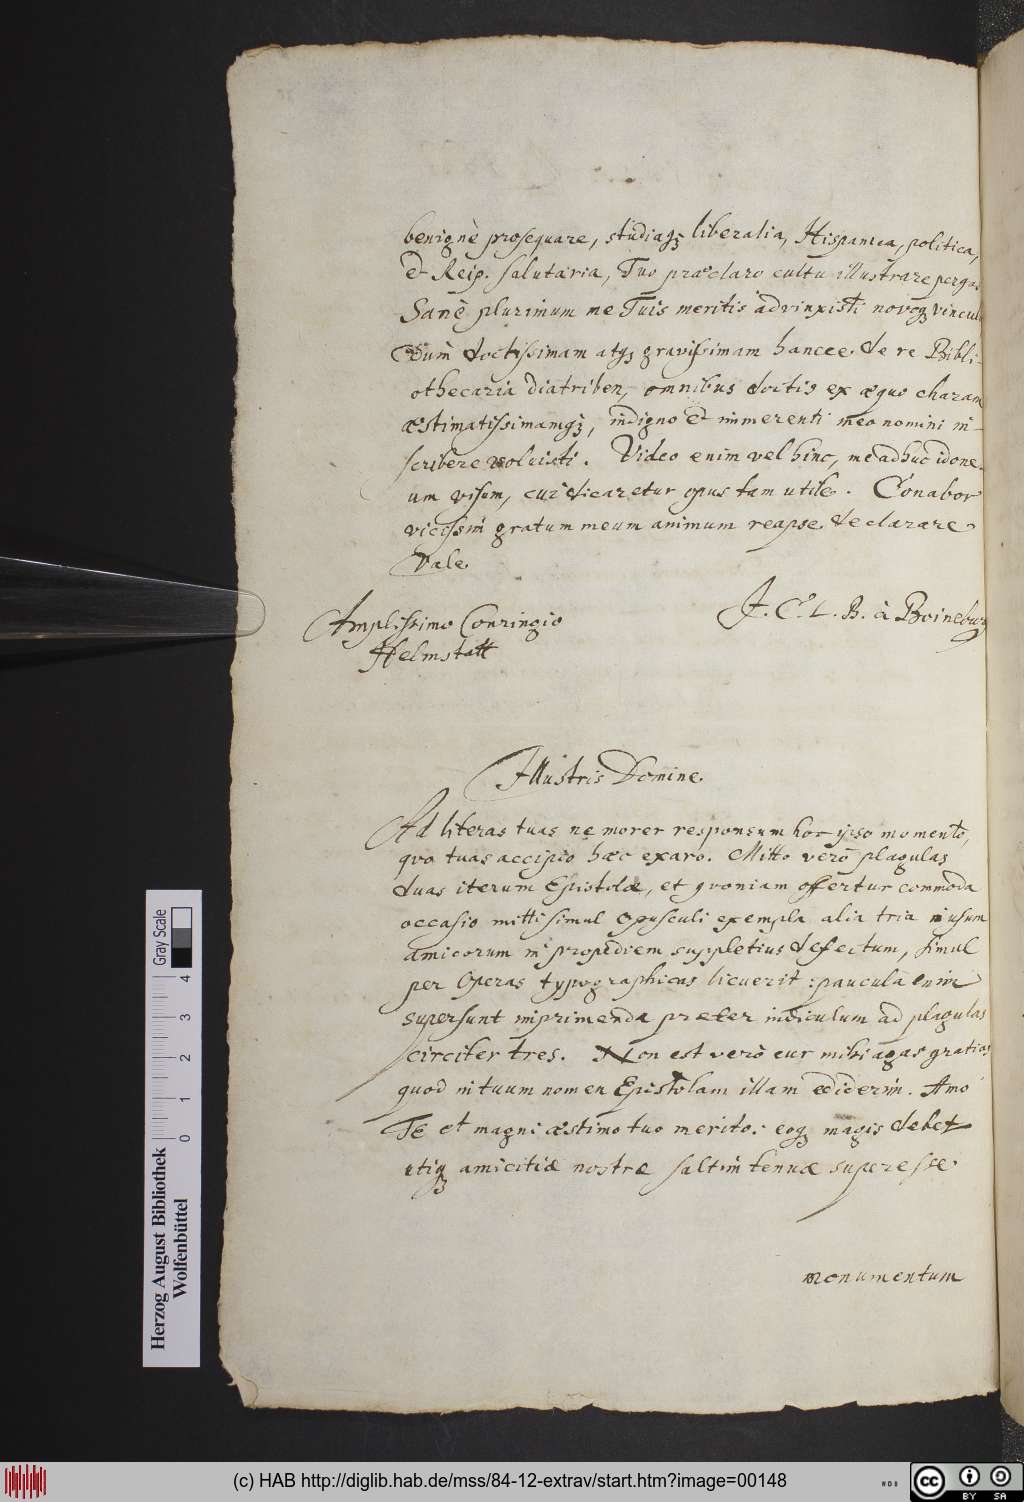 benignè prosequare, studiaq; liberalia, Hispanica, politica,
et Reip. salutaria, Tuo præclaro cultu illustrare pergas
Sanè plurimum me Tuis meritis advinxisti novoq; vinculo
Dum doctissimam atq; gravissimam hancce de re Bibli-
othecaria diatriben, omnibus doctis ex æquo charam
æstimatissimamq;, indigno et immerenti meo nomini in-
scribere voluisti. Video enim vel hinc, me adhuc idone-
um visum, cui dicaretur opus tam utile. Conabor
vicissim gratum meum animum reapse declarare
Vale
J. C. L. B. à Boineburg
Amplissimo Conringio
Helmstatt
Illustris Domine
Ad literas tuas ne morer responsum hoc ipso momento,
quo tuas accipio hæc exaro. Mitto verò plagulas
duas iterum Epistolæ, et quoniam offertur commoda
occasio mitti simul opusculi exempla alia tria in usum
amicorum in propediem suppletius defectum, simul
per Operas typographicas licuerit: paucula enim
supersunt imprimenda præter indiculum ad plagulas
circiter tres. Non est verò cur mihi agas gratias
quod in tuum nomen Epistolam illam ediderim. Amo
Te et magni æstimo tuo merito: eoq; magis debet
utiq; amicitiæ nostræ saltim tenuæ superesse
monumentum
Herzog August Bibliothek
Wolfenbüttel
0 1 2 3 4
Gray Scale
(c) HAB http://diglib.hab.de/mss/84-12-extrav/start.htm?image=00148
WDB
cc BY SA